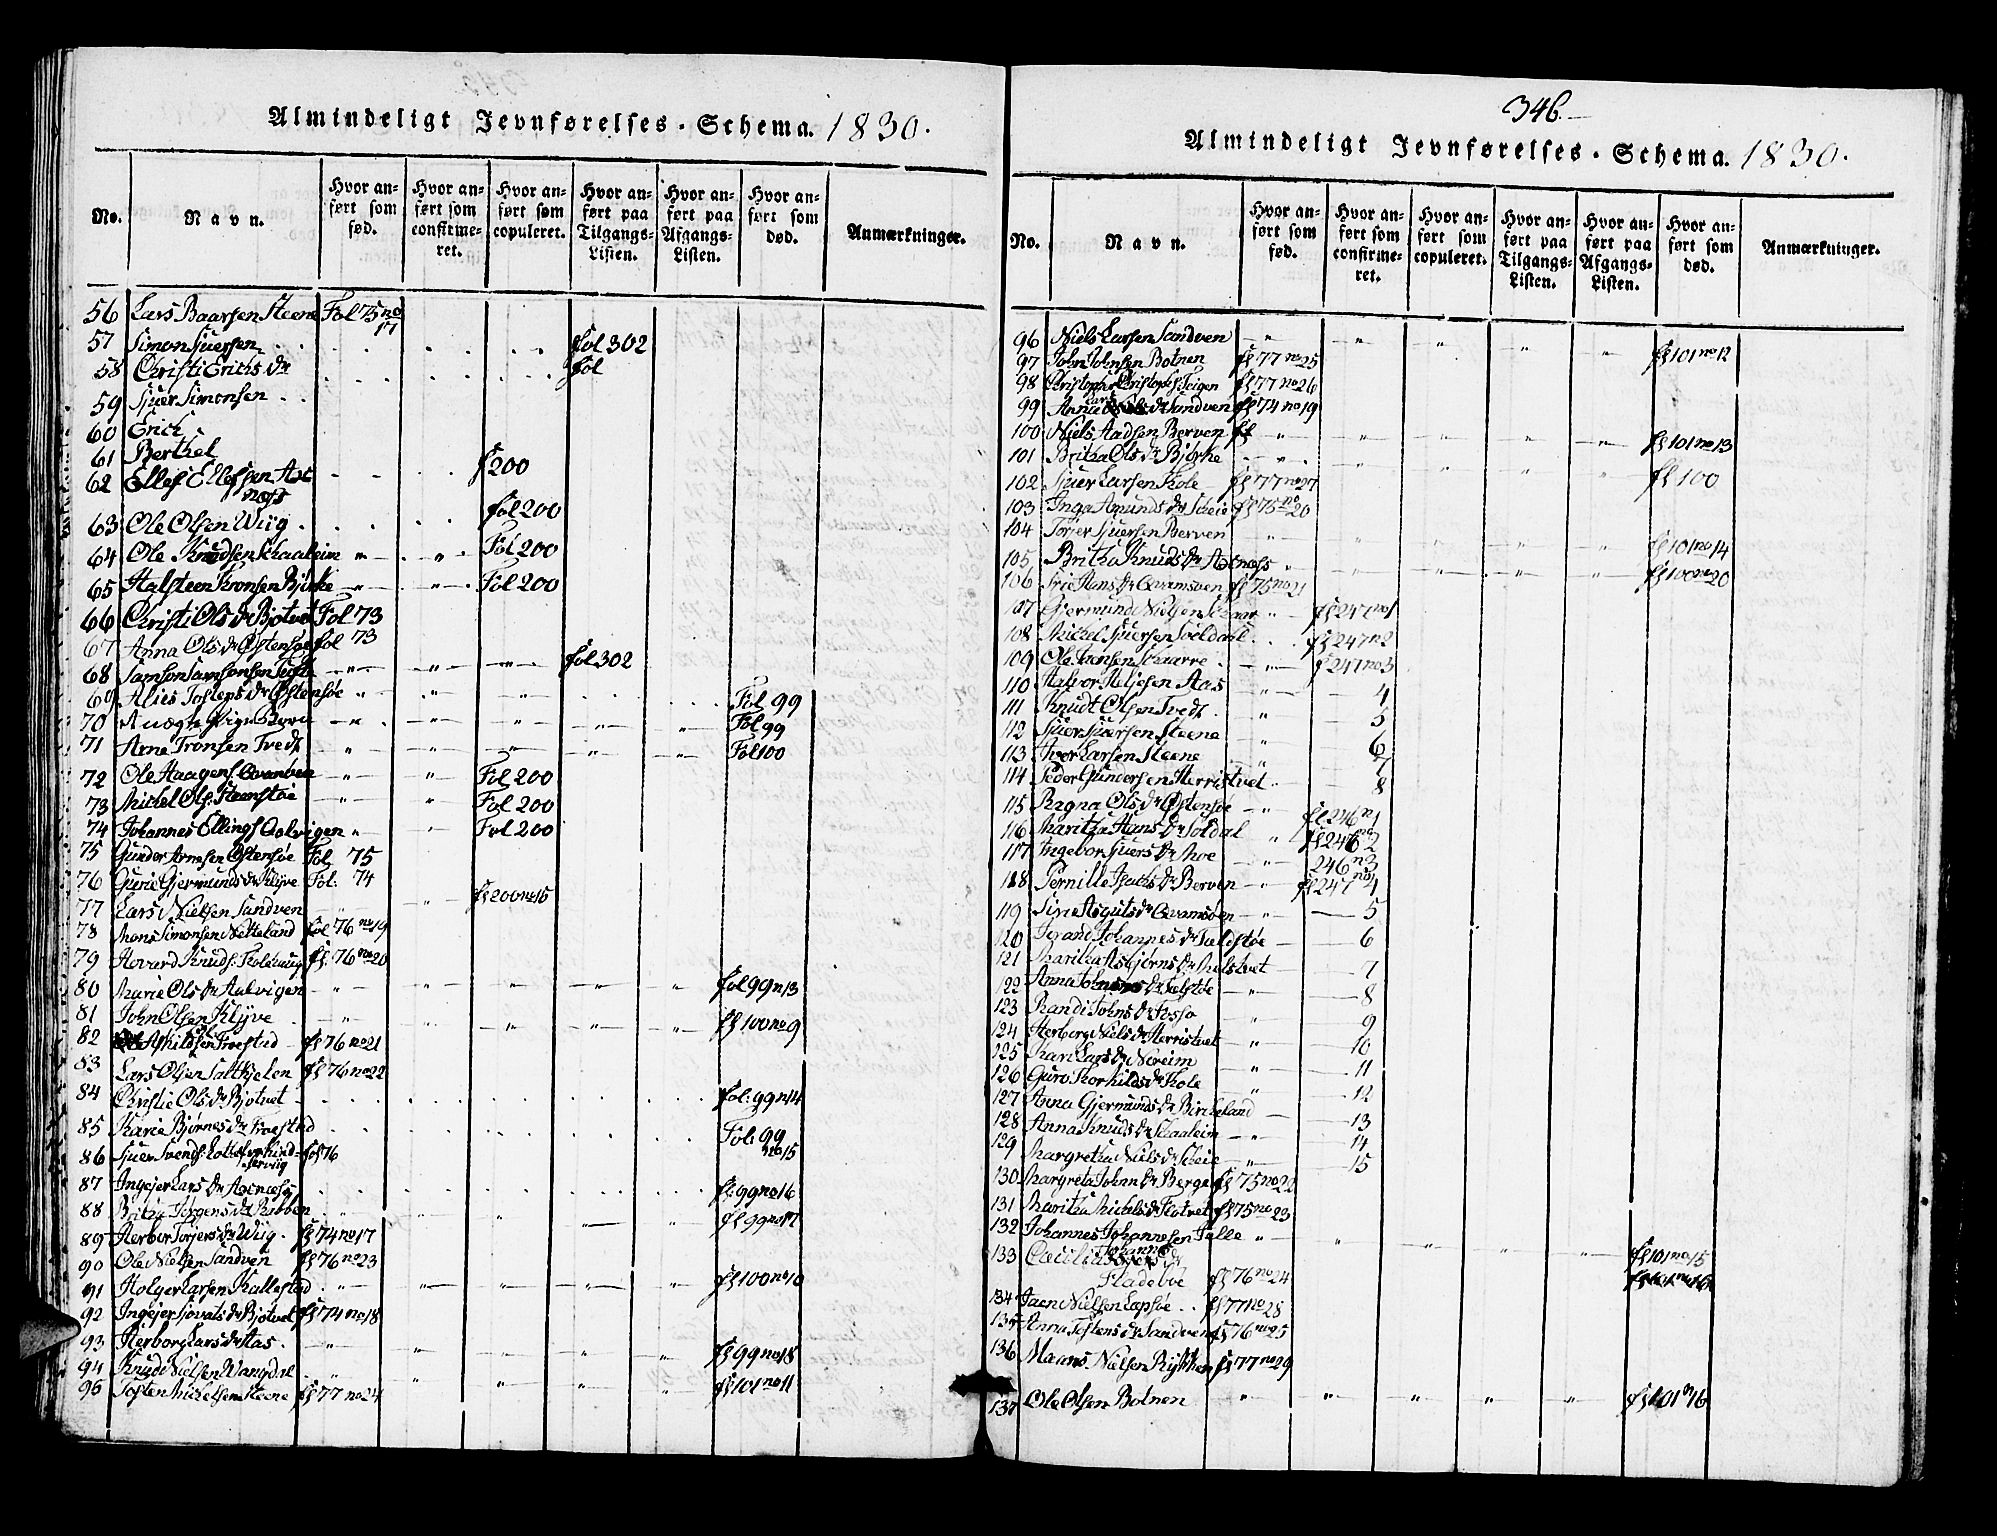 Almindeligt Jevnførelses-Schema. 1830.
No. Navn. Hvor anført som fød. Hvor anført som confirmeret. Hvor anført som copuleret. Hvor anført paa Tilgangs-Listen. Hvor anført paa Afgangs-Listen. Hvor anført som død. Anmærkninger.
56 Lars Baarsen Steene Fol 75 no 17
57 Simon Siuersen Fol 302
58 Christi Erichs Dr fol
59 Sjuer Simonsen
60 Erich
61 Berthel
62 Ellef Ellefsen Axnæss f 200
63 Ole Olsen Wiig fol 200
64 Ole Knudsen Skaaleim Fol 200
65 Halsteen Tronsen Birke Fol 200
66 Christi Ols Dr Bjotvet Fol 73
67 Anna Ols Dr Østensøe fol 73
68 Samson Samsonsen fol 302
69 Østensøe Fol 99
70 Fol 99
71 Arne Tronsen Tvedt Fol 100
72 Ole Haagens. Fol 200
73 Michel Ols. Steenstøe Fol 200
74 Johannes Ellings Aalvigen Fol 200
75 Gunder Arnesen Østensøe Fol. 75
76 Gurie Gjermunds Dr Klyve Fol. 74
77 Lars Nielsen Sandven fl 200 no 15
78 Mons Simonsen Netteland fol 76 no 19
79 Havard Knuds. fl. 76 no 20
80 Marie Ols Dr Aalvigen fol 99 n 13
81 John Olsen Klyve fl 100 no 9
82 fl 76 no 21
83 Lars Olsen fl 76 no 22
84 Christie Ols Dr Bjotvet fol. 99 n 14
85 Karie Bjørnes Dr Fol. 99 no 15
86 Sjuer Svends. fol 76
87 Lars Dr Axnæss fl. 99 no 16
88 Britha Jørgens Dr fl 99 no 17
89 Herbor Torjers Dr Wiig. fl 74 no 17
90 Ole Nielsen Sandven fl 76 no 23
91 Holger Larsen Kallestad fl 100 no 10
92 Bjotvet fl 74 no 18
93 Herborg Lars Dr Aas. fl 99 no 18
94 Knud Nielsen fl 101 no 11
95 Tosten Michelsen Steene fl 77 no 24
346.
Almindeligt Jevnførelses-Schema. 1830.
No. Navn. Hvor anført som fød. Hvor anført som confirmeret. Hvor anført som copuleret. Hvor anført paa Tilgangs-Listen. Hvor anført paa Afgangs-Listen. Hvor anført som død. Anmærkninger.
96 Niels Larsen Sandven fl 101 no 12
97 John Johnsen Botnen fl 77 no 25
98 Christopher Christophs. Teigen fl 77 no 26
99 Anna Lars Dr Sandven fl 74 no 19
100 Niels Aadsen Berven fl fl 101 no 13
101 Britha Ols Dr Bjørke fl 100
102 Sjuer Larsen Skole fl 77 no 27
103 Inga Amunds Dr Scheie fl 75 no 20
104 Torjer Sjuersen Berven fl 101 no 14
105 Britha Knuds Dr Axnæss fl 100 no 20
106 Hans Dr fl 75 no 21
107 Gjermund Nielsen fl 247 no 1
108 Michel Sjuersen fl 247 no 2
109 Ole Iversen f 247 no 3
110 Halvor Heljesen Aas 4
111 Knudt Olsen Tvedt 5
112 Sjuer Sjuersen Steene 6
113 Iver Larsen Steene 7
114 Peder Gundersen Herristvet 8
115 Ragna Ols Dr Østensøe fl 246 n 1
116 Maritha Hans Dr Soldal fl 246 no 2
117 Ingebor Sjuers Dr Moe 246 n 3
118 Pernille Dr Berven fl 247 no 4
119 5
120 Johannes Dr 6
121 Maritha Asbjørns Dr 7
122 Anna 8
123 Randi Johns Dr Fosso 9
124 Herborg Niels Dr Herristvet 10
125 Kari Lars Dr Noreim 11
126 Guro Thorkilds Dr Skole 12
127 Anna Gjermunds Dr Birkeland 13
128 Anna Knuds Dr Skaaleim 14
129 Margretha Niels Dr Scheie 15
130 Margreta Johnn. Dr Berge fl 75 no 22
131 Maritha Michels Dr Flotvet fl 75 no 23
132 Johannes Johannesen fl 101 no 15
133 Cæcilia Johannes Dr
Fladebøe fl 76 no 24
134 Nielsen Lepsøe fl 77 no 28
135 Anna Tostens Dr Sandven fl 76 no 25
136 Maans Nielsen Rykken fl 77 no 29
137 Ole Olsen Botnen fl 101 n 16